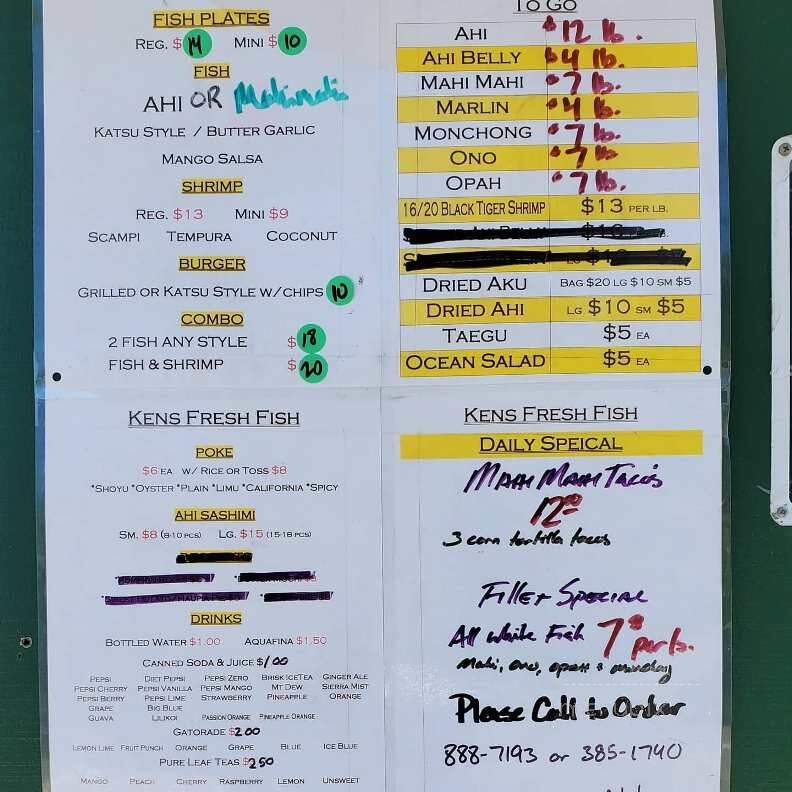 FISH PLATES
REG. $14 MINI $10
FISH
AHI OR Mahimahi
KATSU STYLE / BUTTER GARLIC
MANGO SALSA
SHRIMP
REG. $13 MINI $9
SCAMPI TEMPURA COCONUT
BURGER
GRILLED OR KATSU STYLE W/CHIPS 10
COMBO
2 FISH ANY STYLE $18
FISH & SHRIMP $20
TO GO
AHI $12 lb.
AHI BELLY $4 lb.
MAHI MAHI $7 lb.
MARLIN $4 lb.
MONCHONG $7 lb.
ONO $7 lb.
OPAH $7 lb.
16/20 BLACK TIGER SHRIMP $13 PER LB.
DRIED AKU BAG $20 LG $10 SM $5
DRIED AHI LG $10 SM $5
TAEGU $5 EA
OCEAN SALAD $5 EA
KENS FRESH FISH
POKE
$6 EA W/ RICE OR TOSS $8
*SHOYU *OYSTER *PLAIN *LIMU *CALIFORNIA *SPICY
AHI SASHIMI
SM. $8 (8-10 PCS) LG. $15 (15-18 PCS)
DRINKS
BOTTLED WATER $1.00 AQUAFINA $1.50
CANNED SODA & JUICE $1.00
PEPSI DIET PEPSI PEPSI ZERO BRISK ICETEA GINGER ALE
PEPSI CHERRY PEPSI VANILLA PEPSI MANGO MT DEW SIERRA MIST
PEPSI BERRY PEPSI LIME STRAWBERRY PINEAPPLE ORANGE
GRAPE BIG BLUE
GUAVA LILIKOI PASSION ORANGE PINEAPPLE ORANGE
GATORADE $2.00
LEMON LIME FRUIT PUNCH ORANGE GRAPE BLUE ICE BLUE
PURE LEAF TEAS $2.50
MANGO PEACH CHERRY RASPBERRY LEMON UNSWEET
KENS FRESH FISH
DAILY SPEICAL
MAHI MAHI TACO'S
12.00
3 corn tortilla tacos
Fillet Special
All white Fish 7.00 per lb.
Mahi, ono, opah &
Please Call to Order
888-7193 or 385-1740